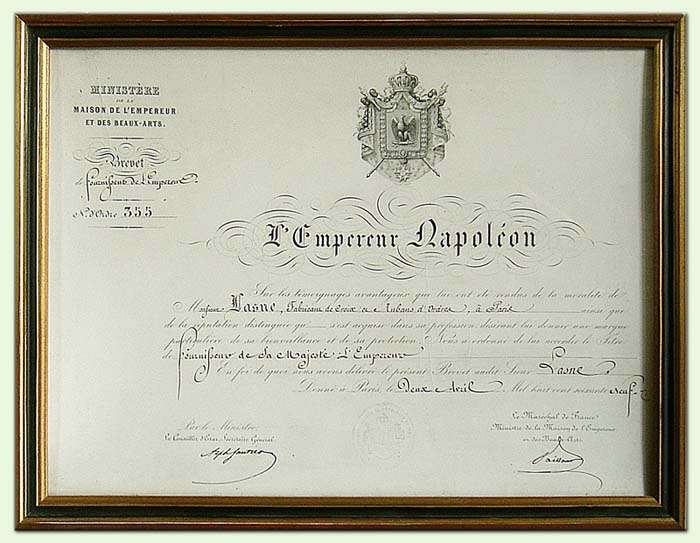 MINISTÈRE
DE LA
MAISON DE L'EMPEREUR
ET DES BEAUX-ARTS.
Brevet
de fournisseur de L'Empereur
N.º d'Ordre 355
L'Empereur Napoléon
Sur les témoignages avantageux que lui ont été rendus de la moralité de
Monsieur Lasne, Fabricant de Croix et Rubans d'Ordres, à Paris ainsi que
de la réputation distinguée qu' s'est acquise dans sa profession désirant lui donner une marque
particulière de sa bienveillance et de sa protection, Nous a ordonné de lui accorder le Titre
de fournisseur de Sa Majesté L'Empereur
En foi de quoi nous avons délivré le présent Brevet audit Sieur Lasne
Donné à Paris, le Deux Avril Mil huit cent soixante neuf
Par le Ministre,
Le Conseiller d'Etat, Secrétaire Général
Le Maréchal de France
Ministre de la Maison de l'Empereur
et des Beaux-Arts
Vaillant